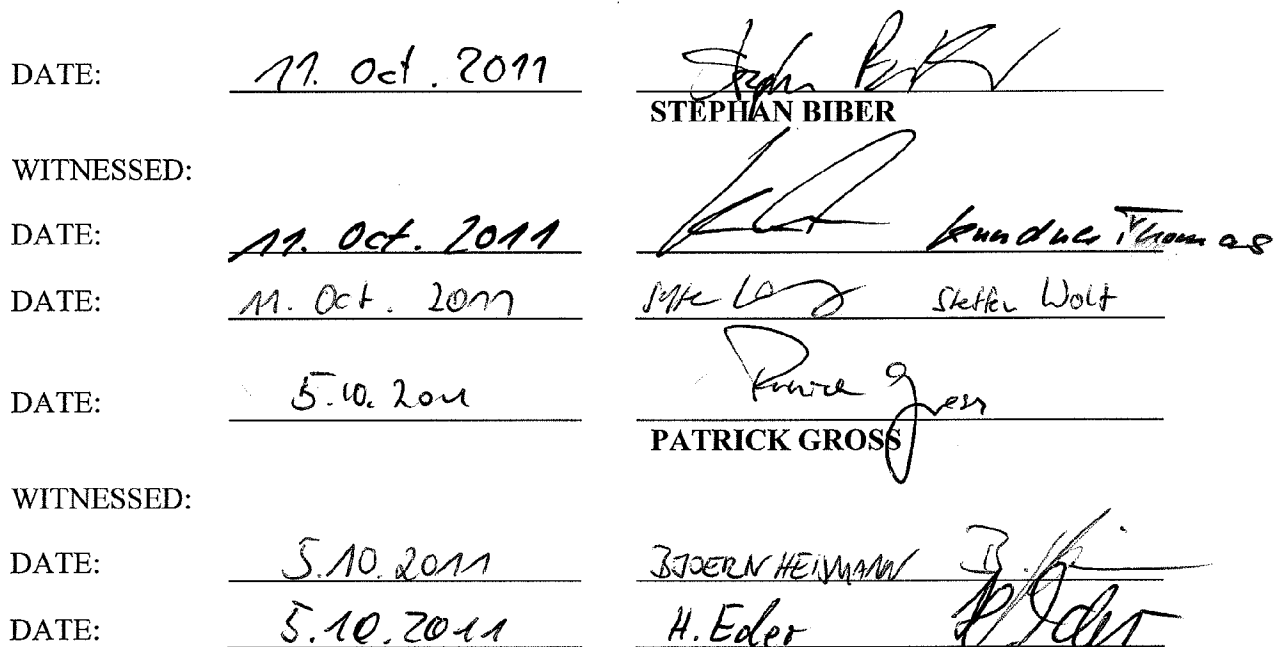 DATE: 11. Oct. 2011 Stephan
STEPHAN BIBER
WITNESSED:
DATE: 11. Oct. 2011 Thomas
DATE: 11. Oct. 2011 Steffen Wolf
DATE: 5.10.2011 Patrick Gross
PATRICK GROSS
WITNESSED:
DATE: 5.10.2011 BJOERN HEISMANN
DATE: 5.10.2011 H. Eder H Eder